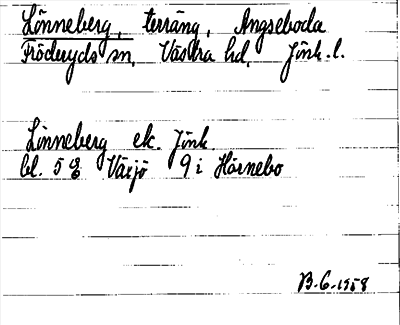 Lönneberg, terräng, Ängseboda
Fröderyds sn, Västra hd, Jönk. l.
Lönneberg ek. Jönk.
bl. 5 E Växjö 9 i Hörnebo
B-G-1958